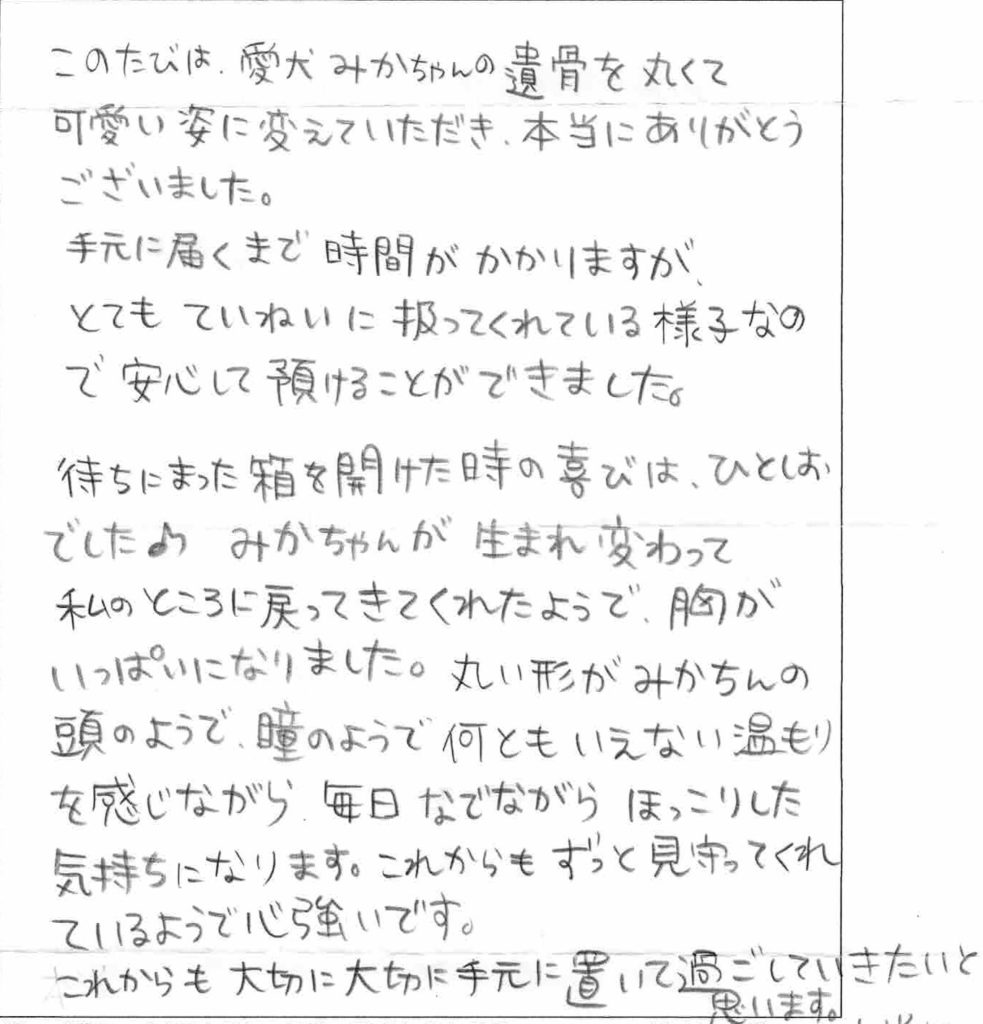 このたびは、愛犬みかちゃんの遺骨を丸くて
可愛い姿に変えていただき、本当にありがとう
ございました。
手元に届くまで時間がかかりますが、
とてもていねいに扱ってくれている様子なの
で安心して預けることができました。
待ちにまった箱を開けた時の喜びは、ひとしお
でした♪ みかちゃんが生まれ変わって
私のところに戻ってきてくれたようで、胸が
いっぱいになりました。丸い形がみかちんの
頭のようで、瞳のようで何ともいえない温もり
を感じながら、毎日なでながらほっこりした
気持ちになります。これからもずっと見守ってくれ
ているようで心強いです。
これからも大切に大切に手元に置いて過ごしていきたいと
思います。